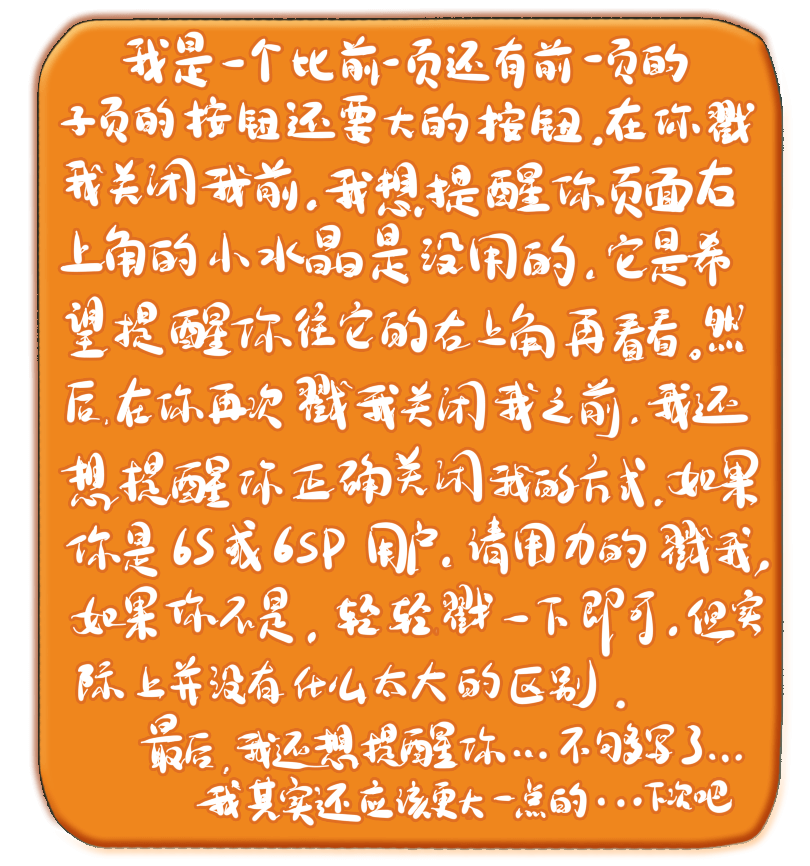 我是一个比前一页还有前一页的
子页的按钮还要大的按钮.在你戳
我关闭我前.我想提醒你页面右
上角的小水晶是没用的.它是希
望提醒你往它的右上角再看看。然
后.在你再次戳我关闭我之前.我还
想提醒你正确关闭我的方式.如果
你是6S或6SP用户.请用力的戳我,
如果你不是.轻轻戳一下即可.但实
际上并没有什么太大的区别.
最后,我还想提醒你...不够写了...
我其实还应该更大一点的...下次吧